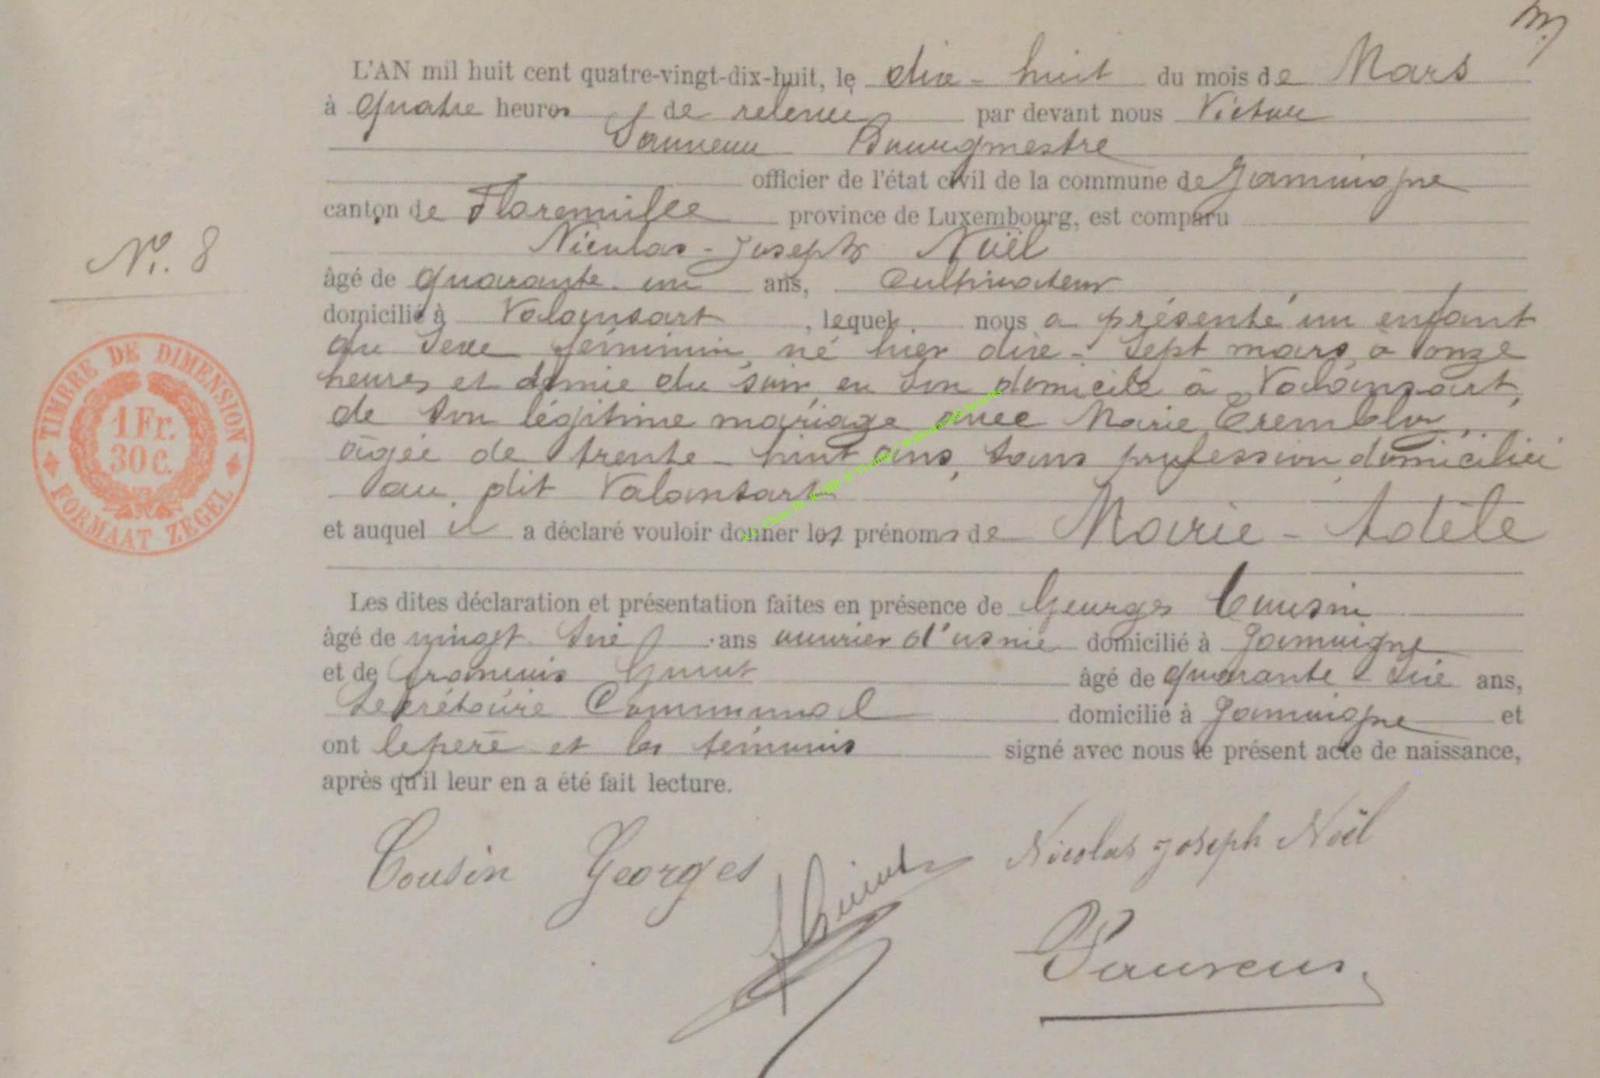 L'AN mil huit cent quatre-vingt-dix-huit, le dix-huit du mois de Mars
à quatre heures de relevée par devant nous Victor
Bourgmestre
officier de l'état civil de la commune de Jamoigne
canton de Florenville province de Luxembourg, est comparu
Nicolas-Joseph Noël
N°. 8
âgé de quarante-un ans, Cultivateur
domicilié à Valansart, lequel nous a présenté un enfant
du sexe féminin, né hier dix-sept mars, à onze
heures et demie du soir, en son domicile à Valansart,
de son légitime mariage avec Marie Trembloy,
âgée de trente-huit ans, sans profession, domiciliée
au dit Valansart
et auquel il a déclaré vouloir donner les prénoms de Marie-Adèle
TIMBRE DE DIMENSION
1 Fr.
30 C.
FORMAAT ZEGEL
Les dites déclaration et présentation faites en présence de Georges Cousin
âgé de vingt six ans ouvrier d'usine domicilié à Jamoigne
et de François âgé de quarante-six ans,
Secrétaire Communal domicilié à Jamoigne et
ont le père et les témoins signé avec nous le présent acte de naissance,
après qu'il leur en a été fait lecture.
Cousin Georges Nicolas Joseph Noël